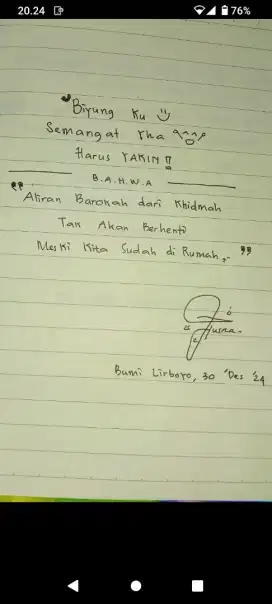 20.24 76%
"Biyung Ku
Semangat Yha
Harus YAKIN !!
B.A.H.W.A
"Aliran Barokah dari Khidmah
Tak Akan Berhenti
Meski Kita Sudah di Rumah,- "
Bumi Lirboyo, 30 Des '24